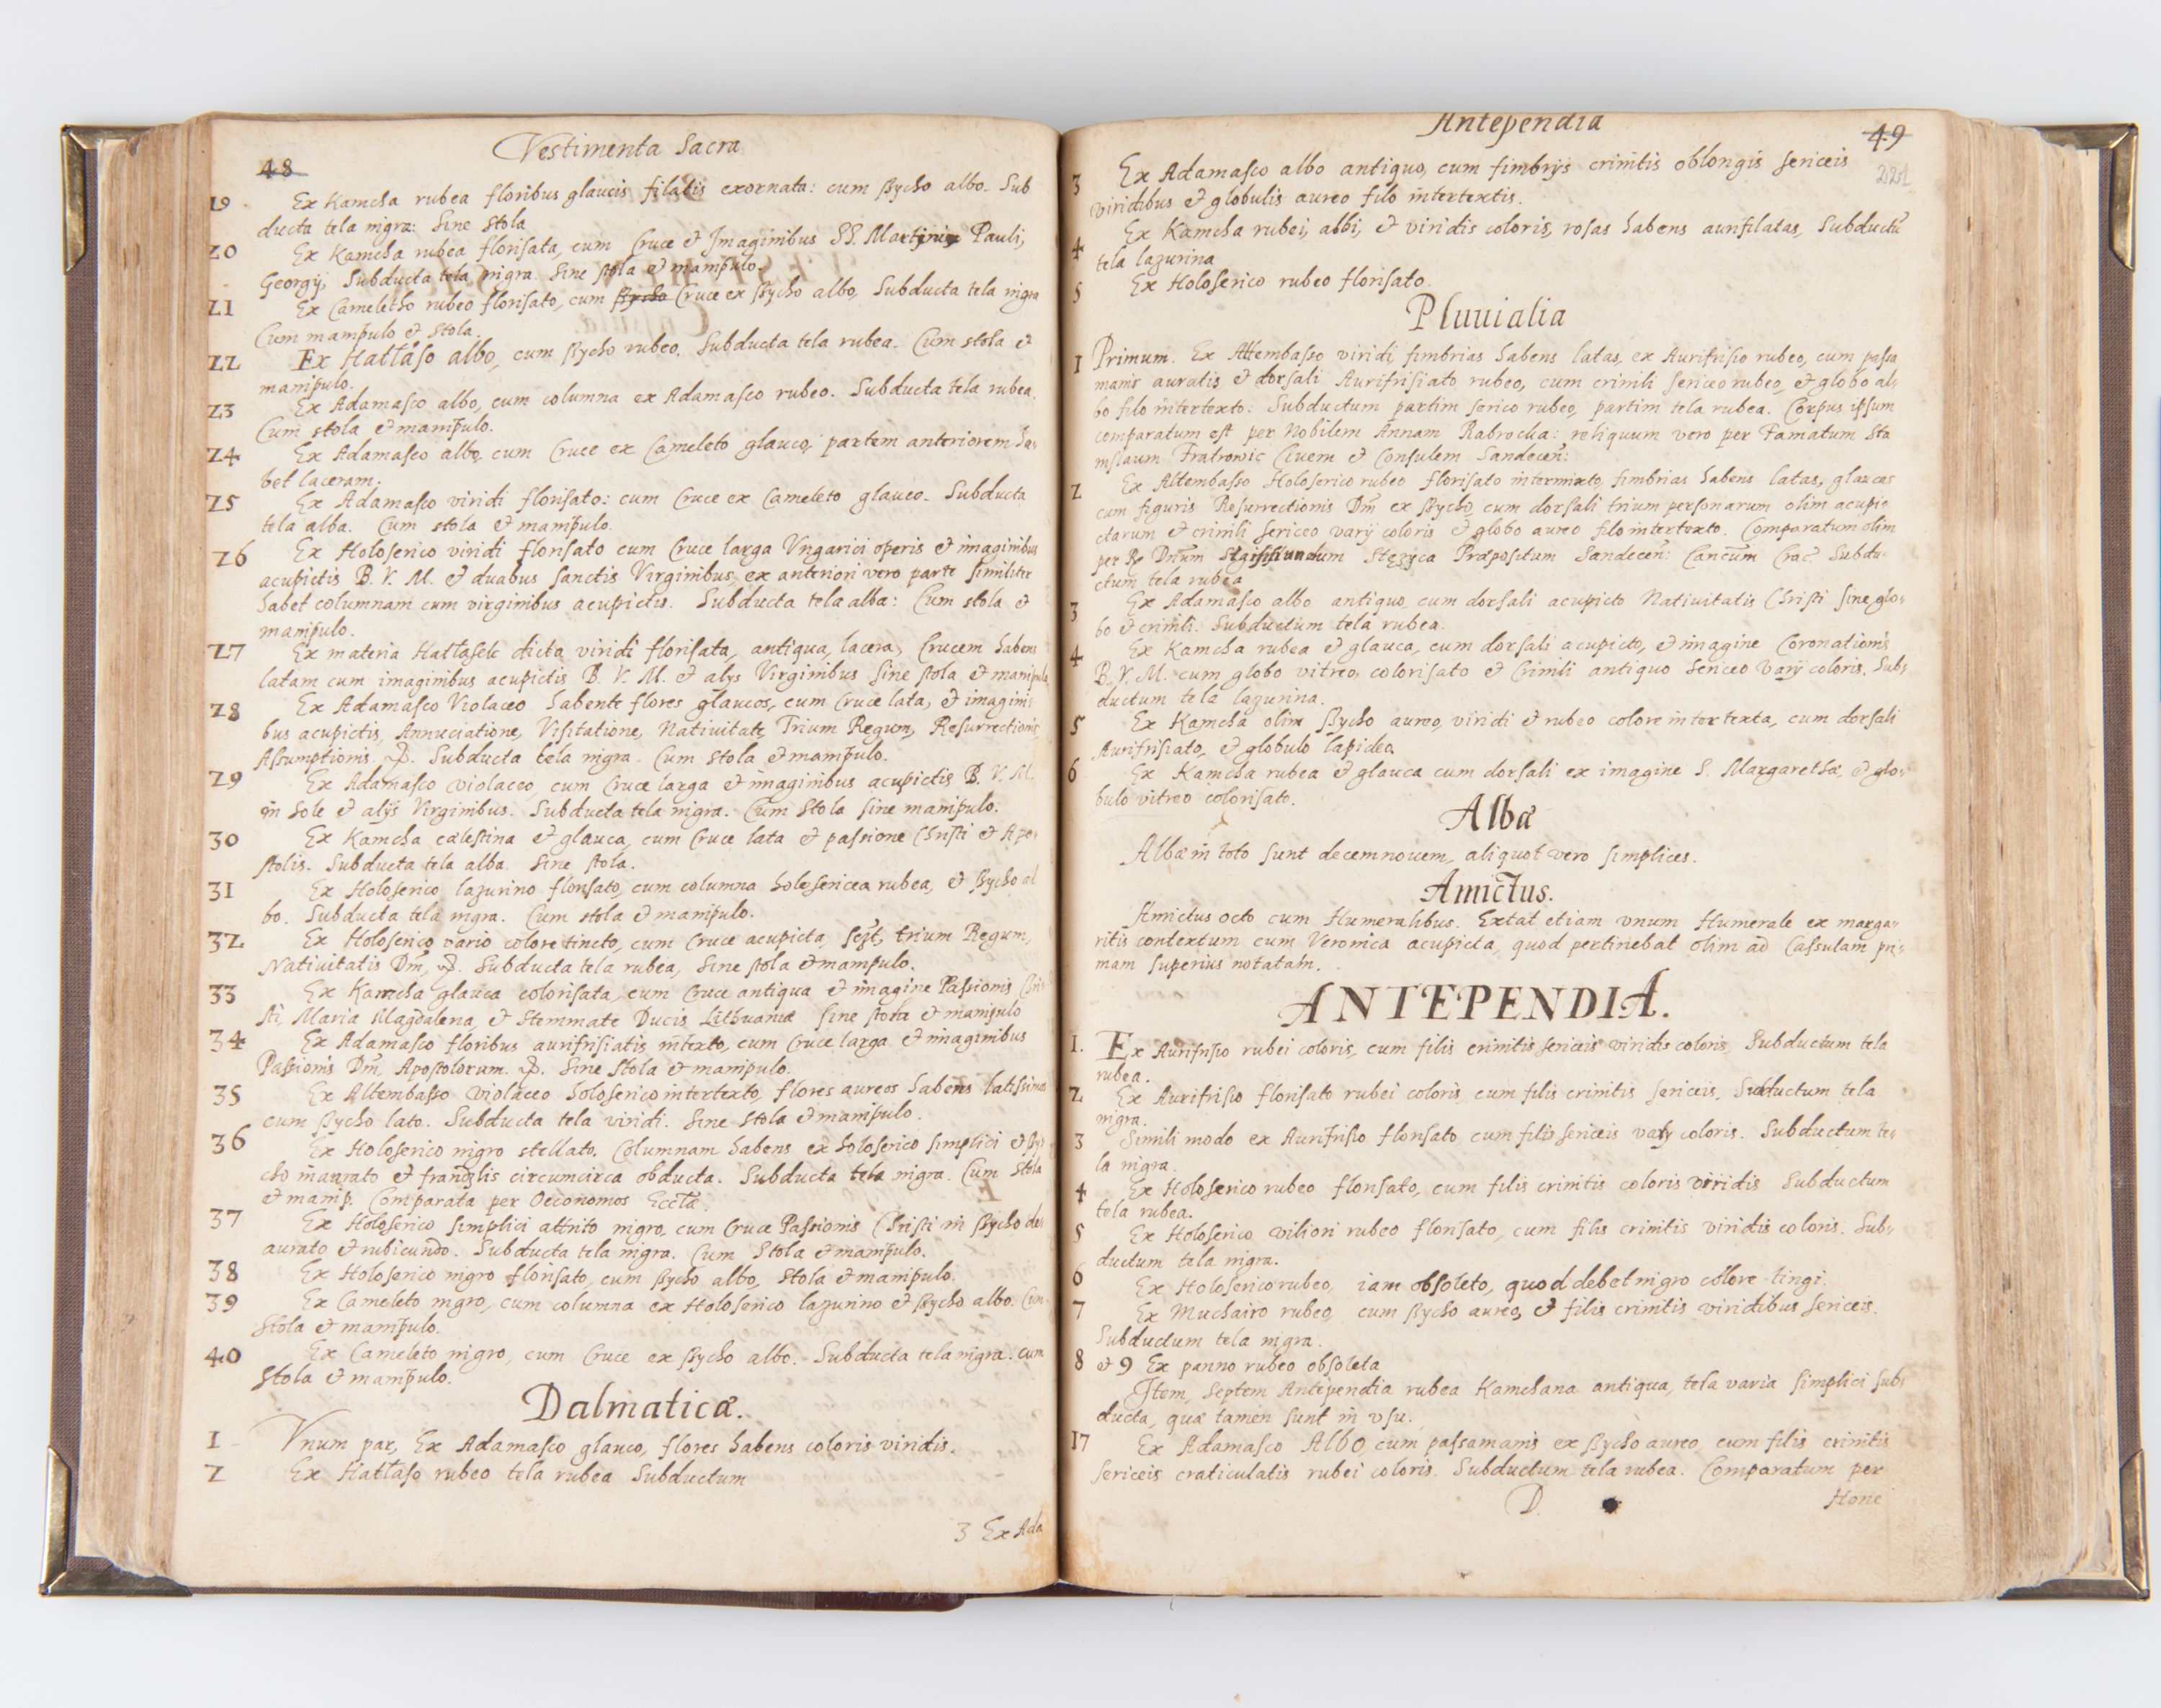 48
Vestimenta Sacra
19 Ex Kamcha rubea floribus glaucis filatis exornata: cum ßycho albo. Sub
ducta tela nigra: Sine Stola
20 Ex Kamcha rubea florisata, cum Cruce et Imaginibus SS. Martini Pauli,
Georgij, Subducta tela nigra. Sine stola et manipulo.
21 Ex Cameletho rubeo florisato, cum ßycho Cruce ex ßycho albo, Subducta tela nigra
Cum manipulo et Stola.
22 Ex Hatłaso albo, cum ßycho rubeo. Subducta tela rubea. Cum stola et
manipulo.
23 Ex Adamasco albo, cum columna ex Adamasco rubeo. Subducta tela rubea.
Cum stola et manipulo.
24 Ex Adamasco albo, cum Cruce ex Cameleto glauco, partem anteriorem ha-
bet laceram.
25 Ex Adamasco viridi florisato: cum Cruce ex Cameleto glauco. Subducta
tela alba. Cum stola et manipulo.
26 Ex Holoserico viridi florisato cum Cruce larga Vngarici operis et imaginibus
acupictis B. V. M. et duabus Sanctis Virginibus, ex anteriori vero parte similiter
habet columnam cum virginibus acupictis. Subducta tela alba: Cum stola et
manipulo.
27 Ex materia Hatłasek dicta viridi florisata, antiqua, lacera, Crucem habens
latam cum imaginibus acupictis B. V. M. et alys Virginibus sine stola et manipulo
28 Ex Adamasco Violaceo habente flores glaucos, cum Cruce lata, et imagini
bus acupictis, Annuciatione, Visitatione, Natiuitate Trium Regum, Resurrectionis
Assumptionis. Subducta tela nigra. Cum stola et manipulo.
29 Ex Adamasco violaceo cum Cruce larga et imaginibus acupictis B. V. M.
in Sole et alijs Virginibus. Subducta tela nigra. Cum Stola sine manipulo.
30 Ex Kamcha cælestina et glauca, cum Cruce lata et passione Christi et Apo-
stolis. Subducta tela alba. Sine stola.
31 Ex Holoserico lazurino florisato, cum columna holosericea rubea, et ßycho al
bo. Subducta tela nigra. Cum stola et manipulo.
32 Ex Holoserico vario colore tincto, cum Cruce acupicta, trium Regum,
Natiuitatis Dni, Subducta tela rubea, Sine stola et manipulo.
33 Ex Kamcha glauca colorisata, cum Cruce antiqua et imagine Passionis Chri
sti, Maria Magdalena, et Stemmate Ducis Lithuaniæ sine stola et manipulo
34 Ex Adamasco floribus aurifrisiatis intexto, cum Cruce larga et imaginibus
Passionis Dni, Apostolorum. Sine Stola et manipulo.
35 Ex Altembasso violaceo holoserico intertexto, flores aureos habens latissimos
cum ßycho lato. Subducta tela viridi. Sine stola et manipulo.
36 Ex Holoserico nigro stellato. Columnam habens ex holoserico simplici et ßy
cho inaurato et frandzlis circumcirca obducta. Subducta tela nigra. Cum Stola
et manip. Comparata per Oeconomos Ecctæ.
37 Ex Holoserico simplici attrito nigro, cum Cruce Passionis Christi in ßycho de
aurato et rubicundo. Subducta tela nigra. Cum Stola et manipulo.
38 Ex Holoserico nigro florisato, cum ßycho albo, Stola et manipulo.
39 Ex Cameleto nigro, cum columna ex Holoserico lazurino et ßycho albo. Cum
Stola et manipulo.
40 Ex Cameleto nigro, cum Cruce ex ßycho albo. Subducta tela nigra. Cum
Stola et manipulo.
Dalmaticæ.
1 Vnum par, Ex Adamasco glauco, flores habens coloris viridis.
2 Ex Hatłaso rubeo tela rubea Subductum
3 Ex Ada
Antependia
49
3 Ex Adamasco albo antiquo, cum fimbrijs crinitis oblongis sericeis
viridibus et globulis aureo filo intertextis.
4 Ex Kamcha rubei, albi, et viridis coloris, rosas habens aurifilatas, Subductū
tela lazurina
5 Ex Holoserico rubeo florisato.
Pluuialia
1 Primum. Ex Altembasso viridi fimbrias habens latas, ex Aurifrisio rubeo, cum passa
manis auratis et dorsali Aurifrisiato rubeo, cum crinili sericeo rubeo, et globo al-
bo filo intertexto. Subductum partim serico rubeo, partim tela rubea. Corpus ipsum
comparatum est per Nobilem Annam Rabrocka: reliquum vero per Famatum Sta
nislaum Fratrowic Ciuem et Consulem Sandecen:
2 Ex Altembasso Holoserico rubeo florisato intermixto, fimbrias habens latas, glaucas
cum figuris Resurrectionis Dni ex ßycho, cum dorsali trium personarum olim acupic
ctarum et crinili sericeo varij coloris et globo aureo filo intertexto. Comparatum olim
per Dnum Sigismundum Præpositum Sandecen: Subdu-
ctum tela rubea
3 Ex Adamasco albo antiquo, cum dorsali acupicto Natiuitatis Christi sine glo-
bo et crinili. Subductum tela rubea.
4 Ex Kamcha rubea et glauca, cum dorsali acupicto, et imagine Coronationis
B. V. M. cum globo vitreo, colorisato et Crinili antiquo sericeo varij coloris. Sub-
ductum tela lazurina.
5 Ex Kamcha olim ßycho aureo, viridi et rubeo colore intertexta, cum dorsali
Aurifrisiato, et globulo lapideo
6 Ex Kamcha rubea et glauca cum dorsali ex imagine S. Margarethæ, et glo-
bulo vitreo colorisato.
Albæ
Albæ in toto sunt decemnouem, aliquot vero simplices.
Amictus.
Amictus octo cum Humeralibus. Extat etiam vnum Humerale ex marga-
ritis contextum cum Veronica acupicta, quod pertinebat olim ad Cassulam pri-
mam superius notatam.
ANTEPENDIA.
1. Ex Aurifrisio rubei coloris, cum filis crinitis sericeis viridis coloris Subductum tela
rubea.
2 Ex Aurifrisio florisato rubei coloris, cum filis crinitis sericeis, Subductum tela
nigra.
3 Simili modo ex Aurifrisio florisato cum filis sericeis varij coloris. Subductum te-
la nigra
4 Ex Holoserico rubeo florisato, cum filis crinitis coloris viridis Subductum
tela rubea.
5 Ex Holoserico viliori rubeo florisato, cum filis crinitis viridis coloris. Sub-
ductum tela nigra.
6 Ex Holoserico rubeo, iam obsoleto, quod debet nigro colore tingi.
7 Ex Muchairo rubeo, cum ßycho aureo, et filis crinitis viridibus sericeis.
Subductum tela nigra.
8 et 9 Ex panno rubeo obsoleta
Item, Septem Antependia rubea Kamchana antiqua, tela varia simplici sub-
ducta, quæ tamen sunt in vsu.
17 Ex Adamasco Albo, cum passamanis ex ßycho aureo, cum filis crinitis
sericeis craticulatis rubei coloris. Subductum tela rubea. Comparatum per
D.
Hone